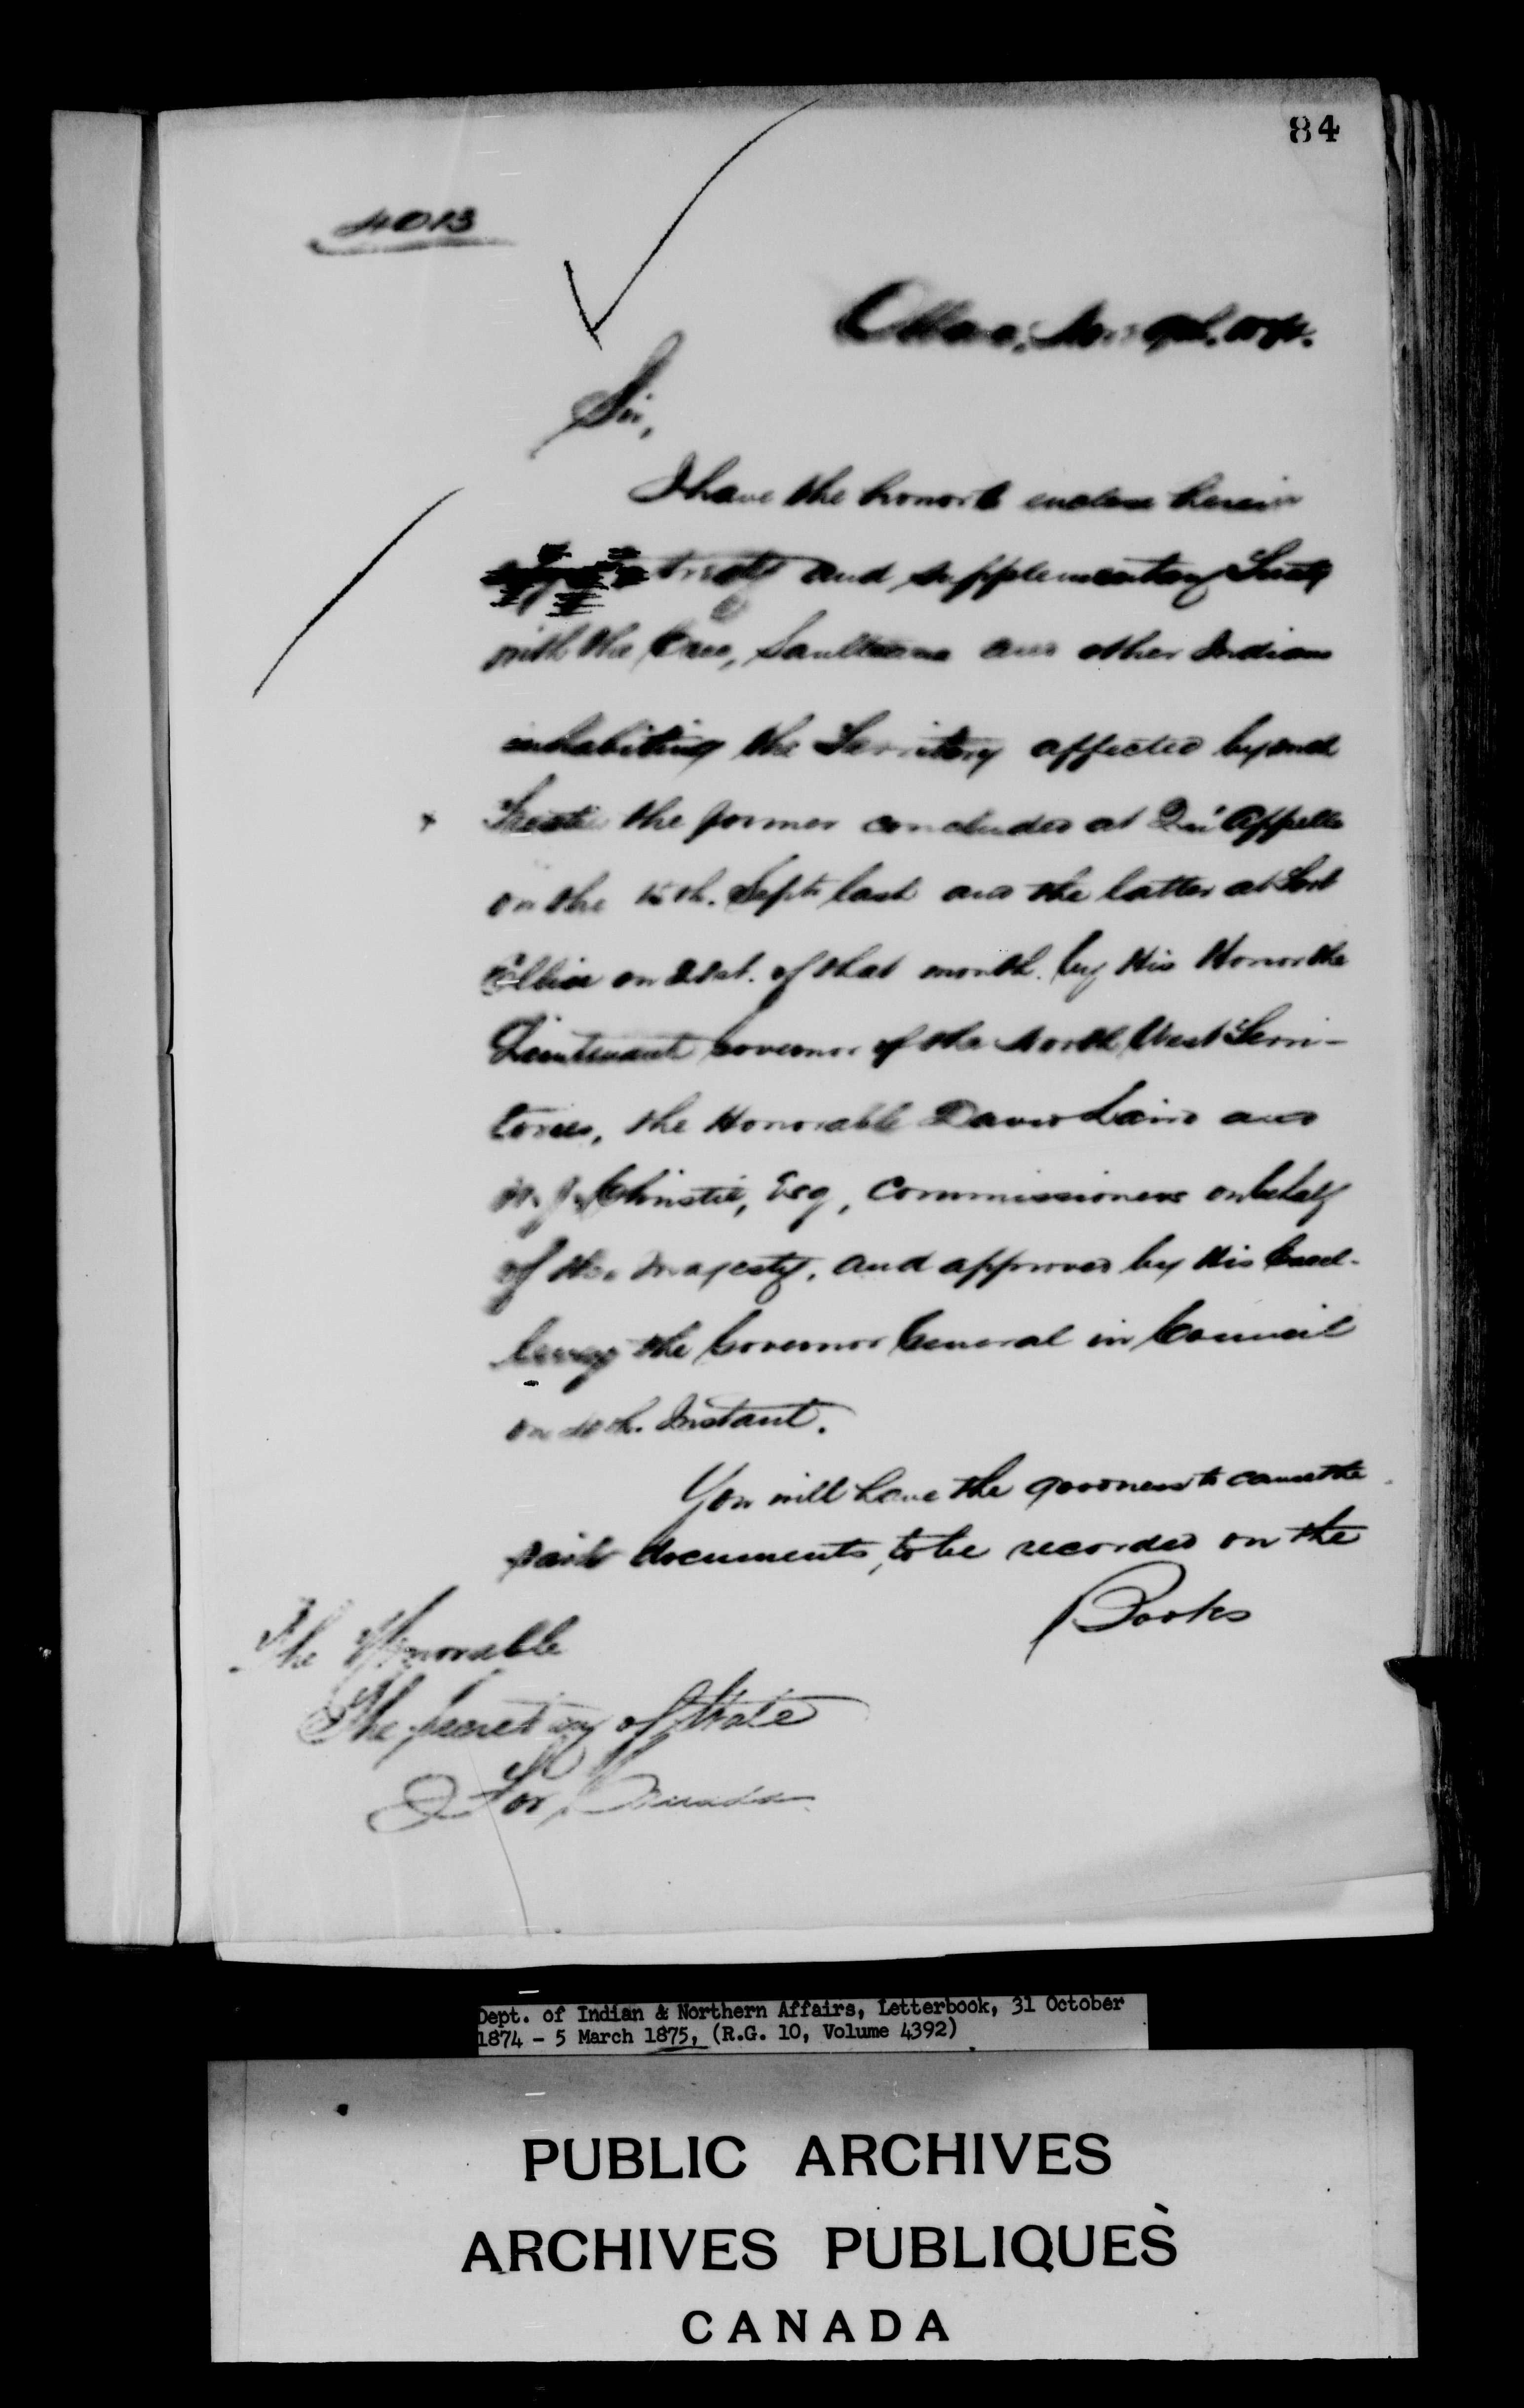 84
4013
Sir,
I have the honor to enclose herein
treaty and supplementary Treaty
with the Cree, Saulteaux and other Indians
inhabiting the Territory affected by
Treaties the former concluded at Qu'Appelle
on the 15th. Septr. last and the latter at Fort
Ellice on 21st. of that month by His Honor the
Lieutenant Governor of the North West Terri-
tories, the Honorable David Laird and
W. J. Christie, Esq, Commissioners on behalf
of Her Majesty, and approved by His Excel-
lency the Governor General in Council
on Instant.
You will have the goodness to cause the
said documents, to be recorded on the
Books
The Honorable
The Secretary of State
For Canada
Dept. of Indian & Northern Affairs, Letterbook, 31 October
1874 - 5 March 1875, (R.G. 10, Volume 4392)
PUBLIC ARCHIVES
ARCHIVES PUBLIQUES
CANADA